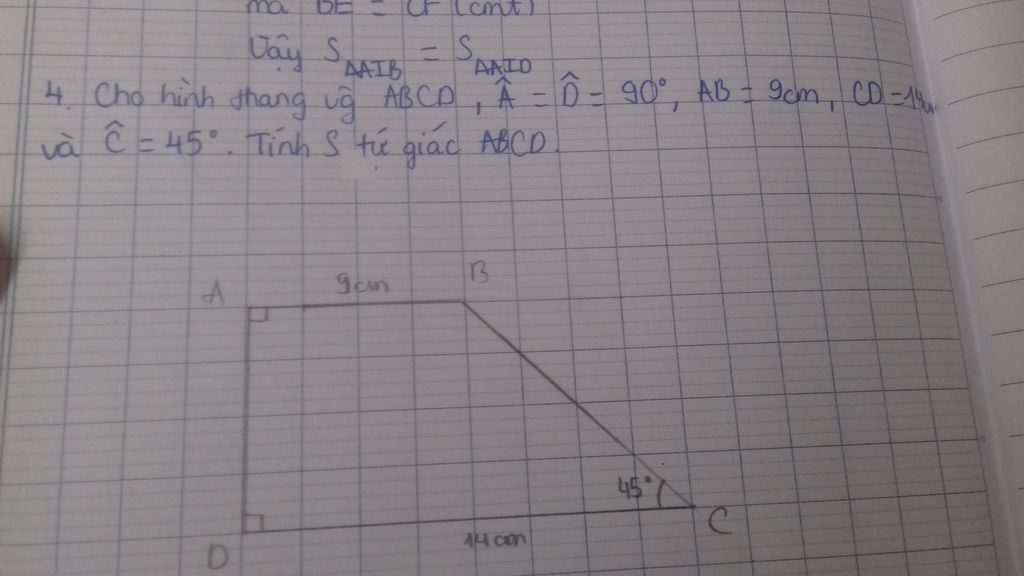 mà BE = CF (cmt)
Vậy S ΔAIB = S ΔAID
4. Cho hình thang vg ABCD, Â = D̂ = 90°, AB = 9cm, CD = 14cm
và Ĉ = 45°. Tính S tứ giác ABCD.
A 9cm B
45°
D 14cm C